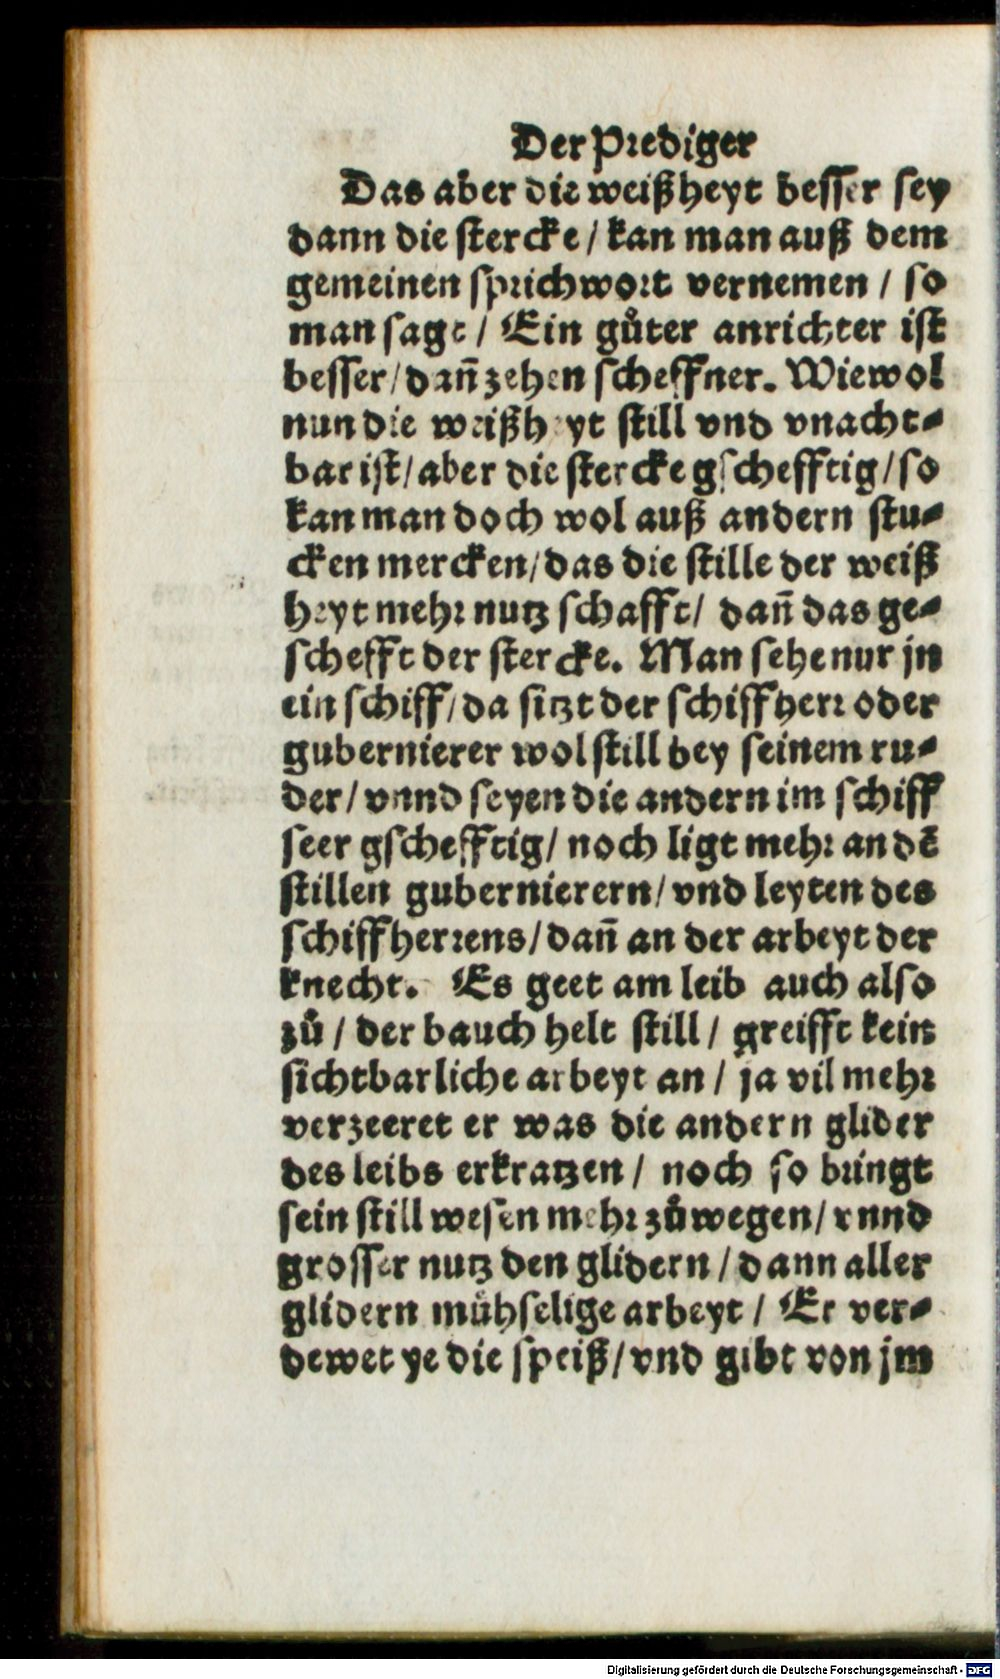 Der Prediger
Das aber die weißheyt besser sey
dann die stercke / kan man auß dem
gemeinen sprichwort vernemen / so
man sagt / Ein gůter anrichter ist
besser / dañ zehen scheffner. Wiewol
nun die weißheyt still vnd vnacht-
bar ist / aber die stercke gschefftig / so
kan man doch wol auß andern stu-
cken mercken / das die stille der weiß
heyt mehr nutz schafft / dañ das ge-
schefft der stercke. Man sehe nur jn
ein schiff / da sitzt der schiffherr oder
gubernierer wol still bey seinem ru-
der / vnnd seyen die andern im schiff
seer gschefftig / noch ligt mehr an dē
stillen gubernierern / vnd leyten des
schiffherrens / dañ an der arbeyt der
knecht. Es geet am leib auch also
zů / der bauch helt still / greifft kein
sichtbarliche arbeyt an / ja vil mehr
verzeeret er was die andern glider
des leibs erkratzen / noch so bringt
sein still wesen mehr zůwegen / vnnd
grosser nutz den glidern / dann aller
glidern mühselige arbeyt / Er ver-
dewet ye die speiß / vnd gibt von jm
Digitalisierung gefördert durch die Deutsche Forschungsgemeinschaft - DFG